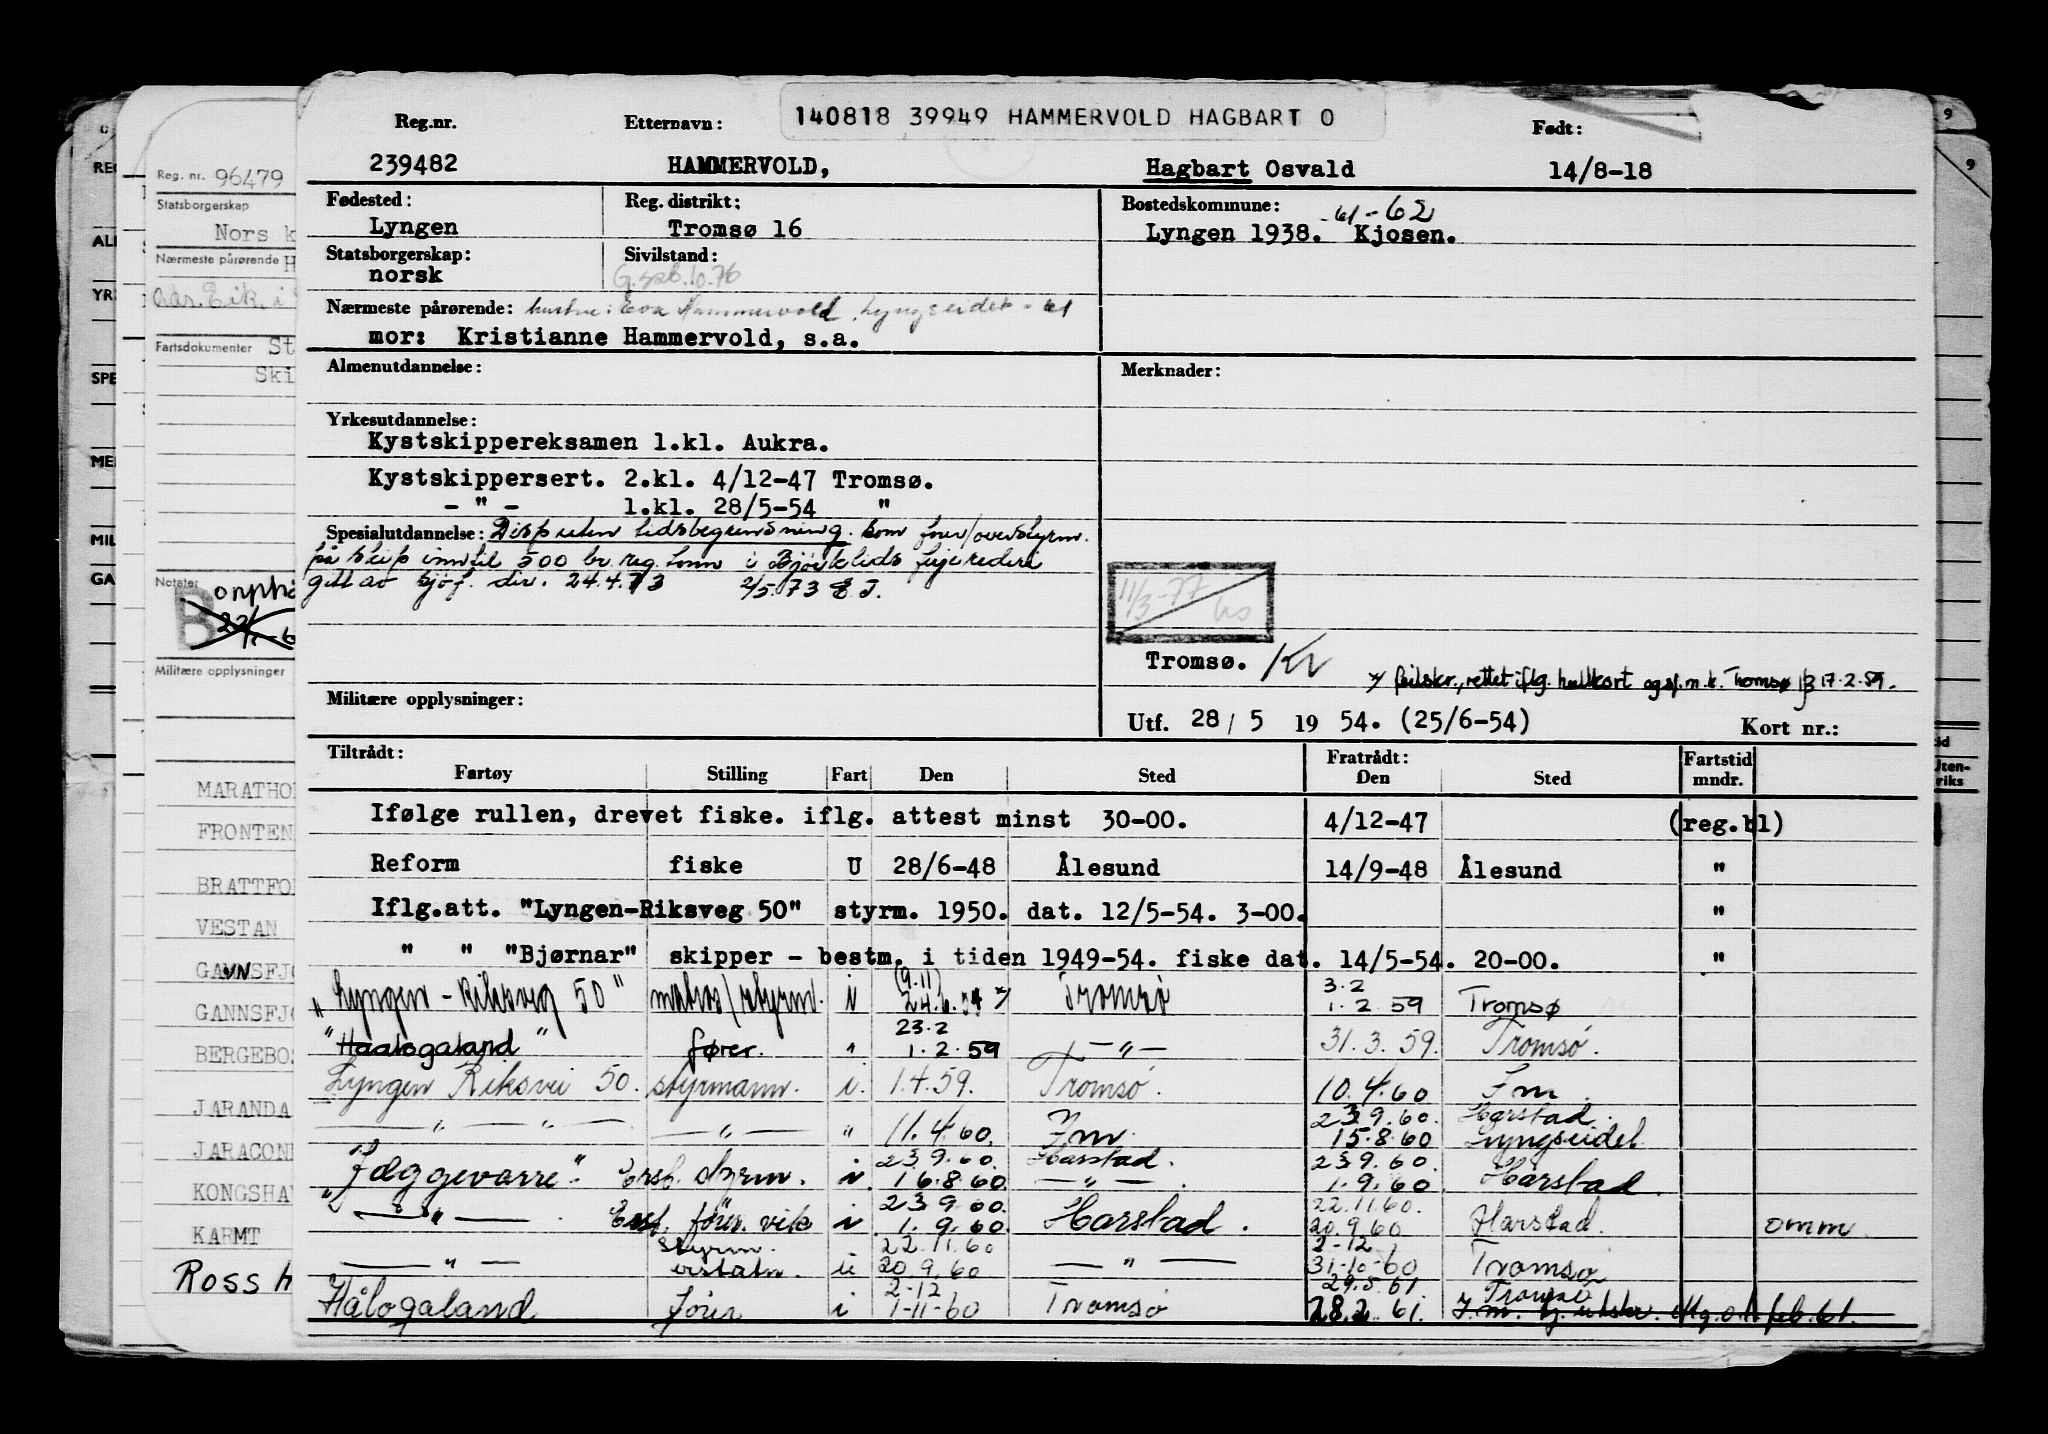 140818 39949 HAMMERVOLD HAGBART O
Reg.nr. Etternavn: Født:
239482 HAMMERVOLD, Hagbart Osvald 14/8-18
Fødested: Reg. distrikt: Bostedskommune:
-61-62
Lyngen Tromsø 16 Lyngen 1938. Kjosen.
Statsborgerskap: Sivilstand:
norsk
Nærmeste pårørende: hustru: Eva Hammervold, Lyngseidet - 61
mor: Kristianne Hammervold, s.a.
Almenutdannelse: Merknader:
Yrkesutdannelse:
Kystskippereksamen 1.kl. Aukra.
Kystskippersert. 2.kl. 4/12-47 Tromsø.
- " - 1.kl. 28/5-54 "
Spesialutdannelse: Disp uten tidsbegrensning. som fører/overstyrm.
på skip inntil 500 br. reg. tonn i Bjørklids ferjerederi
gitt av sjøf. dir. 24.4.73 2/5.73 E.J.
11/3-77
Tromsø. Kr
x) feilskr., rettet iflg. hullkort og sj.m.k. Tromsø 17.2.59.
Militære opplysninger:
Utf. 28/5 1954. (25/6-54) Kort nr.:
Tiltrådt: Fratrådt: Fartstid
Fartøy Stilling Fart Den Sted Den Sted mndr.
Ifølge rullen, drevet fiske. iflg. attest minst 30-00. 4/12-47 (reg.bl)
Reform fiske U 28/6-48 Ålesund 14/9-48 Ålesund "
Iflg.att. "Lyngen-Riksveg 50" styrm. 1950. dat. 12/5-54. 3-00. "
" " "Bjørnar" skipper - bestm. i tiden 1949-54. fiske dat. 14/5-54. 20-00. "
(9.11) 3.2
"Lyngen - Riksveg 50" matros/styrm. i 24.6.54 x) Tromsø 1.2.59 Tromsø
23.2
"Haalogaland" fører. " 1.2.59 - " - 31.3.59. Tromsø.
Lyngen Riksvei 50. styrmann. i. 1.4.59. Tromsø. 10.4.60 Fm.
23.9.60. Harstad.
- " - " - - " - " 11.4.60. Fm. 15.8.60 Lyngseidet
23.9.60. Harstad. 23.9.60.
"Jæggevarre". Erst. styrm. i. 16.8.60. - " - . 1.9.60. Harstad.
23.9.60. 22.11.60.
- " - . Erst. fører. vik i 1.9.60. Harstad. 20.9.60 Harstad. omm
styrm. 22.11.60 2-12
- " - erstatn. ii 20.9.60 - " - 31-10-60 Tromsø
2-12 29.5.61 Tromsø
Hålogaland fører i 1-11-60 Tromsø 28.2.61. feb. 61.
Reg. nr. 96479
Statsborgerskap
Nors k
Nærmeste pårørende H
Fartsdokumenter St
Ski
Notater
B
22/
Militære opplysninger
MARATHO
FRONTEN
BRATTFO
VESTAN
GANNSFJ
GANNSFJ
BERGEBO
JARANDA
JARACON
KONGSHA
KARMT
ROSS
REG
ALM
YRK
SPE
MER
MIL
GA
9
9
tid
Uten-
riks